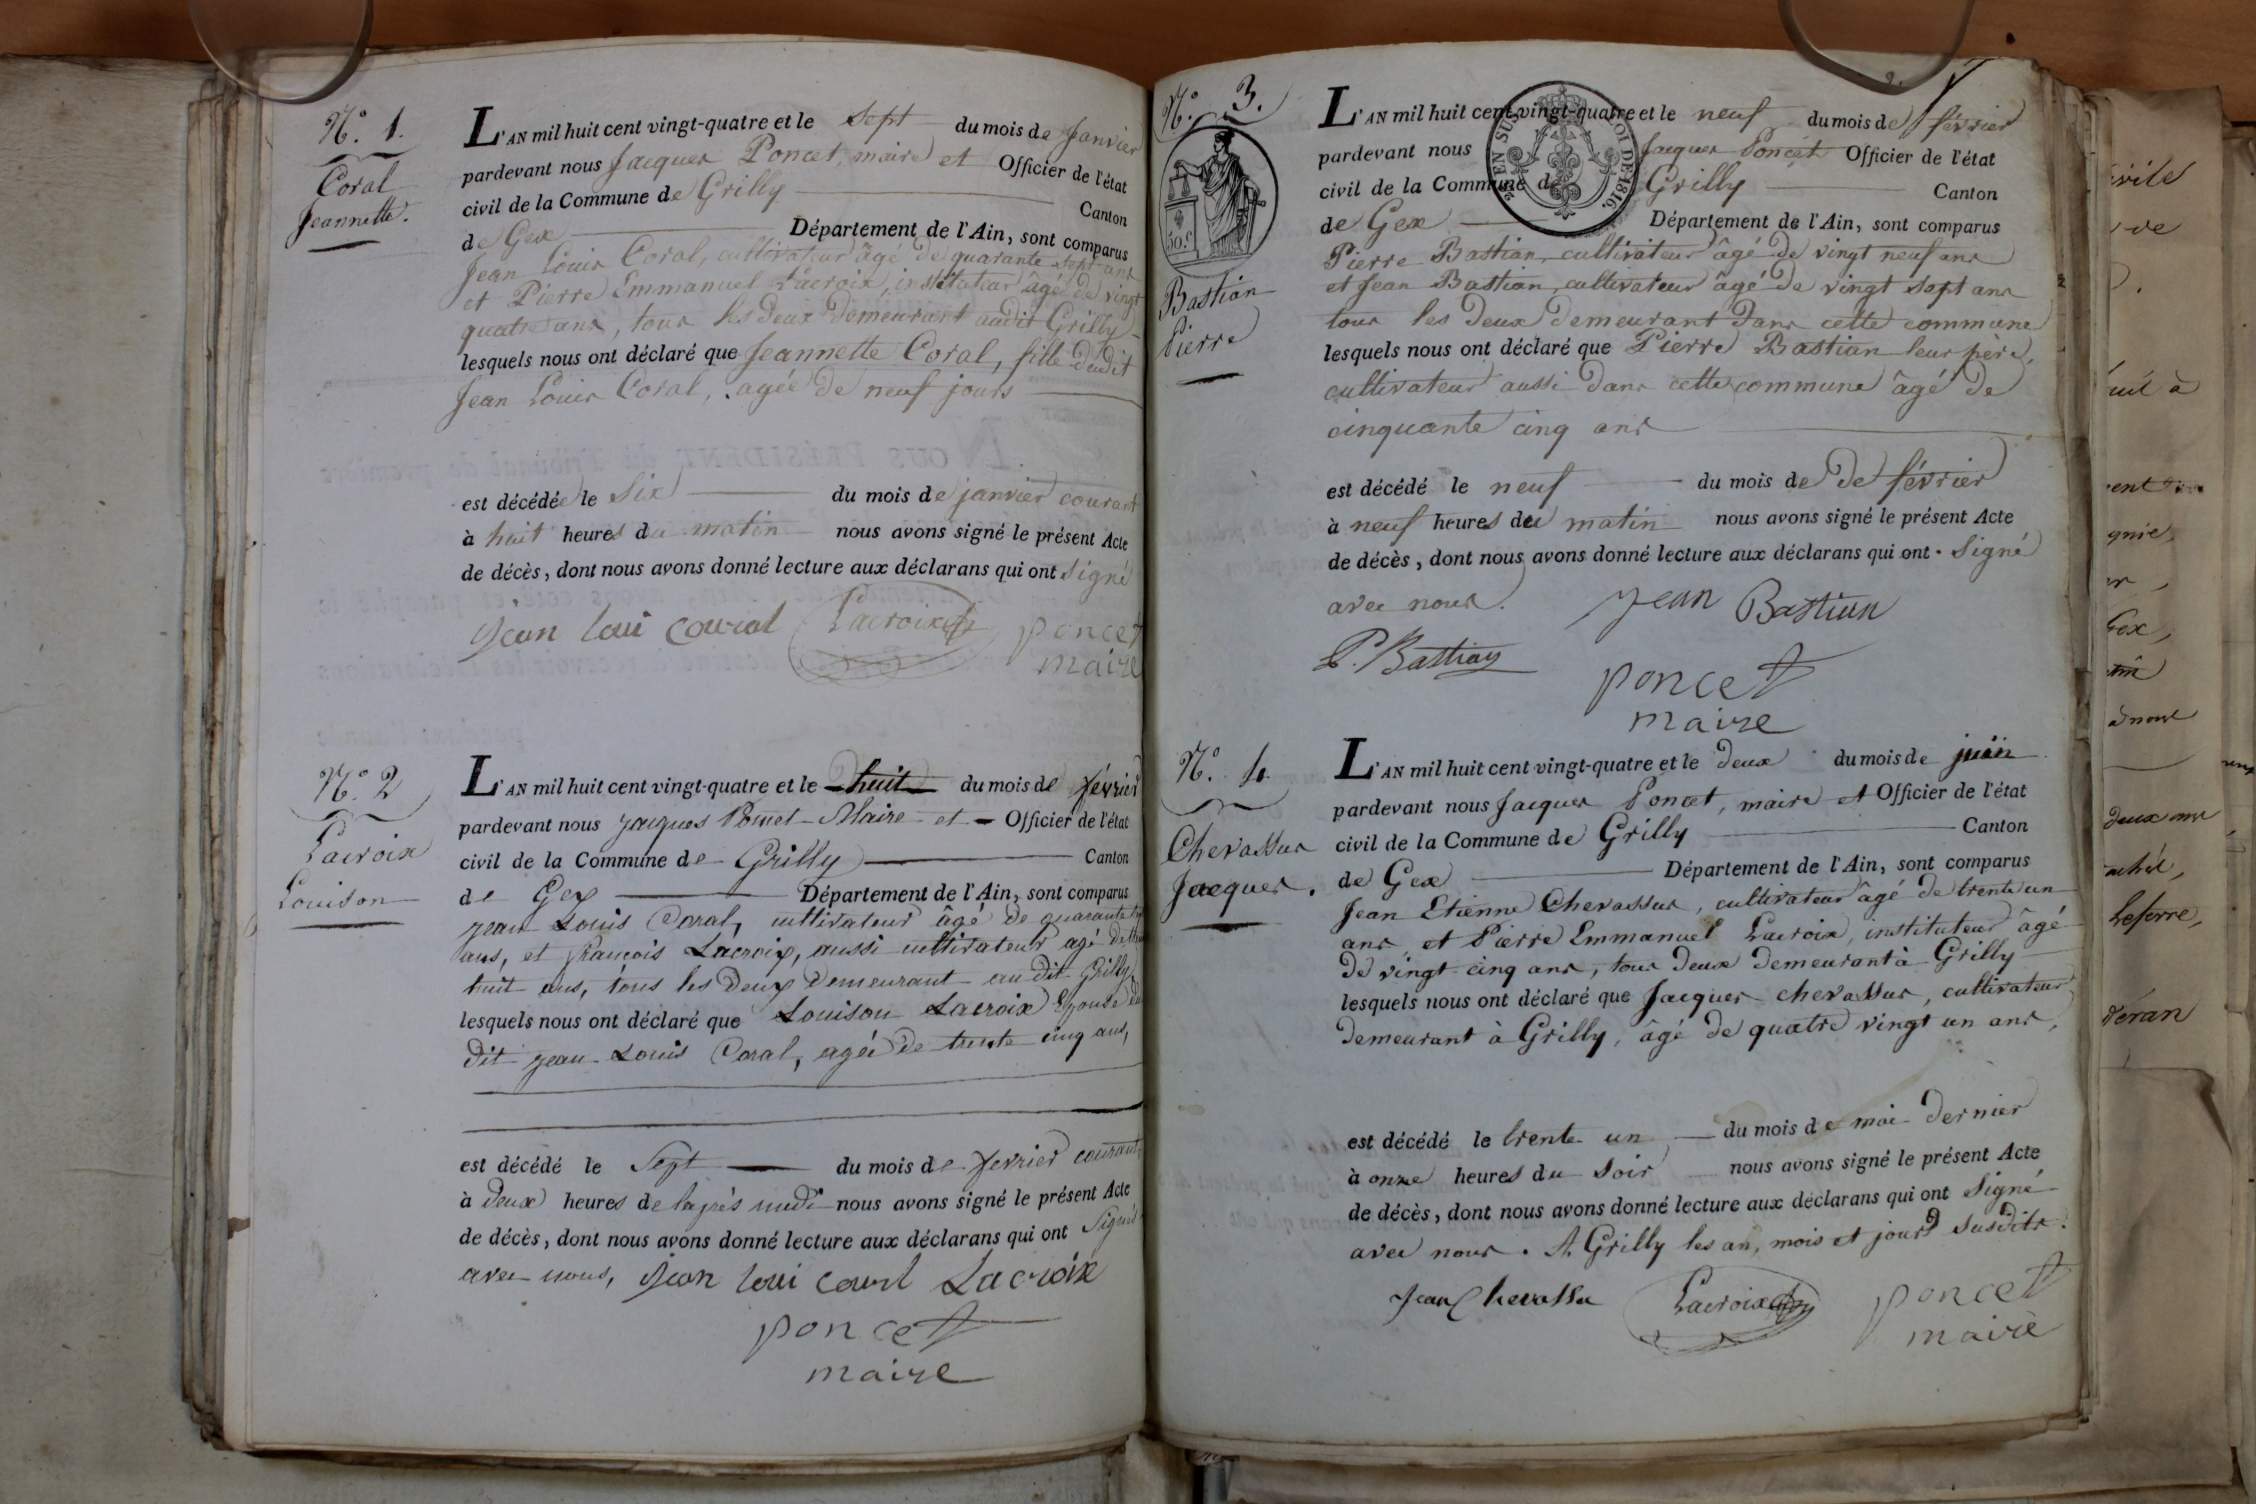 N.° 1.
Coral
Jeannette.
L'AN mil huit cent vingt-quatre et le sept du mois de Janvier
pardevant nous Jacques Poncet, maire et Officier de l'état
civil de la Commune de Grilly Canton
de Gex Département de l'Ain, sont comparus
Jean Louis Coral, cultivateur âgé de quarante sept ans
et Pierre Emmanuel Lacroix, instituteur âgé de vingt
quatre ans, tous les deux demeurant audit Grilly
lesquels nous ont déclaré que Jeannette Coral, fille dudit
Jean Louis Coral, agée de neuf jours
est décédée le Six du mois de janvier courant
à huit heures du matin nous avons signé le présent Acte
de décès, dont nous avons donné lecture aux déclarans qui ont signé
Jean loui coural Lacroix poncet
maire
N.° 2
Lacroix
Louison
L'AN mil huit cent vingt-quatre et le huit du mois de février
pardevant nous Jacques Poncet Maire et Officier de l'état
civil de la Commune de Grilly Canton
de Gex Département de l'Ain, sont comparus
Jean Louis Coral, cultivateur âgé de quarante
ans, et François Lacroix, aussi cultivateur agé de
huit ans, tous les deux demeurant au dit Grilly
lesquels nous ont déclaré que Louison Lacroix Epouse du
dit Jean Louis Coral, agée de trente cinq ans,
est décédé le Sept du mois de fevrier courant
à deux heures de laprès midi nous avons signé le présent Acte
de décès, dont nous avons donné lecture aux déclarans qui ont Signé
avec nous, Jean loui courl Lacroix
poncet
maire
2.
N.° 3.
50 c
Bastian
Pierre
EN SUS LOI DE 1816.
L'AN mil huit cent vingt-quatre et le neuf du mois de février
pardevant nous Jacques Poncet Officier de l'état
civil de la Commune de Grilly Canton
de Gex Département de l'Ain, sont comparus
Pierre Bastian, cultivateur âgé de vingt neuf ans
et Jean Bastian, cultivateur âgé de vingt sept ans
tous les deux demeurant dans cette commune
lesquels nous ont déclaré que Pierre Bastian leur père,
cultivateur aussi dans cette commune âgé de
cinquante cinq ans
est décédé le neuf du mois de de février
à neuf heures du matin nous avons signé le présent Acte
de décès, dont nous avons donné lecture aux déclarans qui ont Signé
avec nous. Jean Bastian
P. Bastian
poncet
maire
N.° 4.
Chevassus
Jacques.
L'AN mil huit cent vingt-quatre et le deux du mois de juin
pardevant nous Jacques Poncet, maire et Officier de l'état
civil de la Commune de Grilly Canton
de Gex Département de l'Ain, sont comparus
Jean Etienne Chevassus, cultivateur âgé de trente un
ans et Pierre Emmanuel Lacroix, instituteur âgé
de vingt cinq ans, tous deux demeurant à Grilly
lesquels nous ont déclaré que Jacques chevassus, cultivateur
demeurant à Grilly, âgé de quatre vingt un ans,
est décédé le trente un du mois de mai dernier
à onze heures du soir nous avons signé le présent Acte
de décès, dont nous avons donné lecture aux déclarans qui ont Signé
avec nous. A Grilly les an, mois et jours susdits.
Jean Chevassu Lacroix poncet
maire